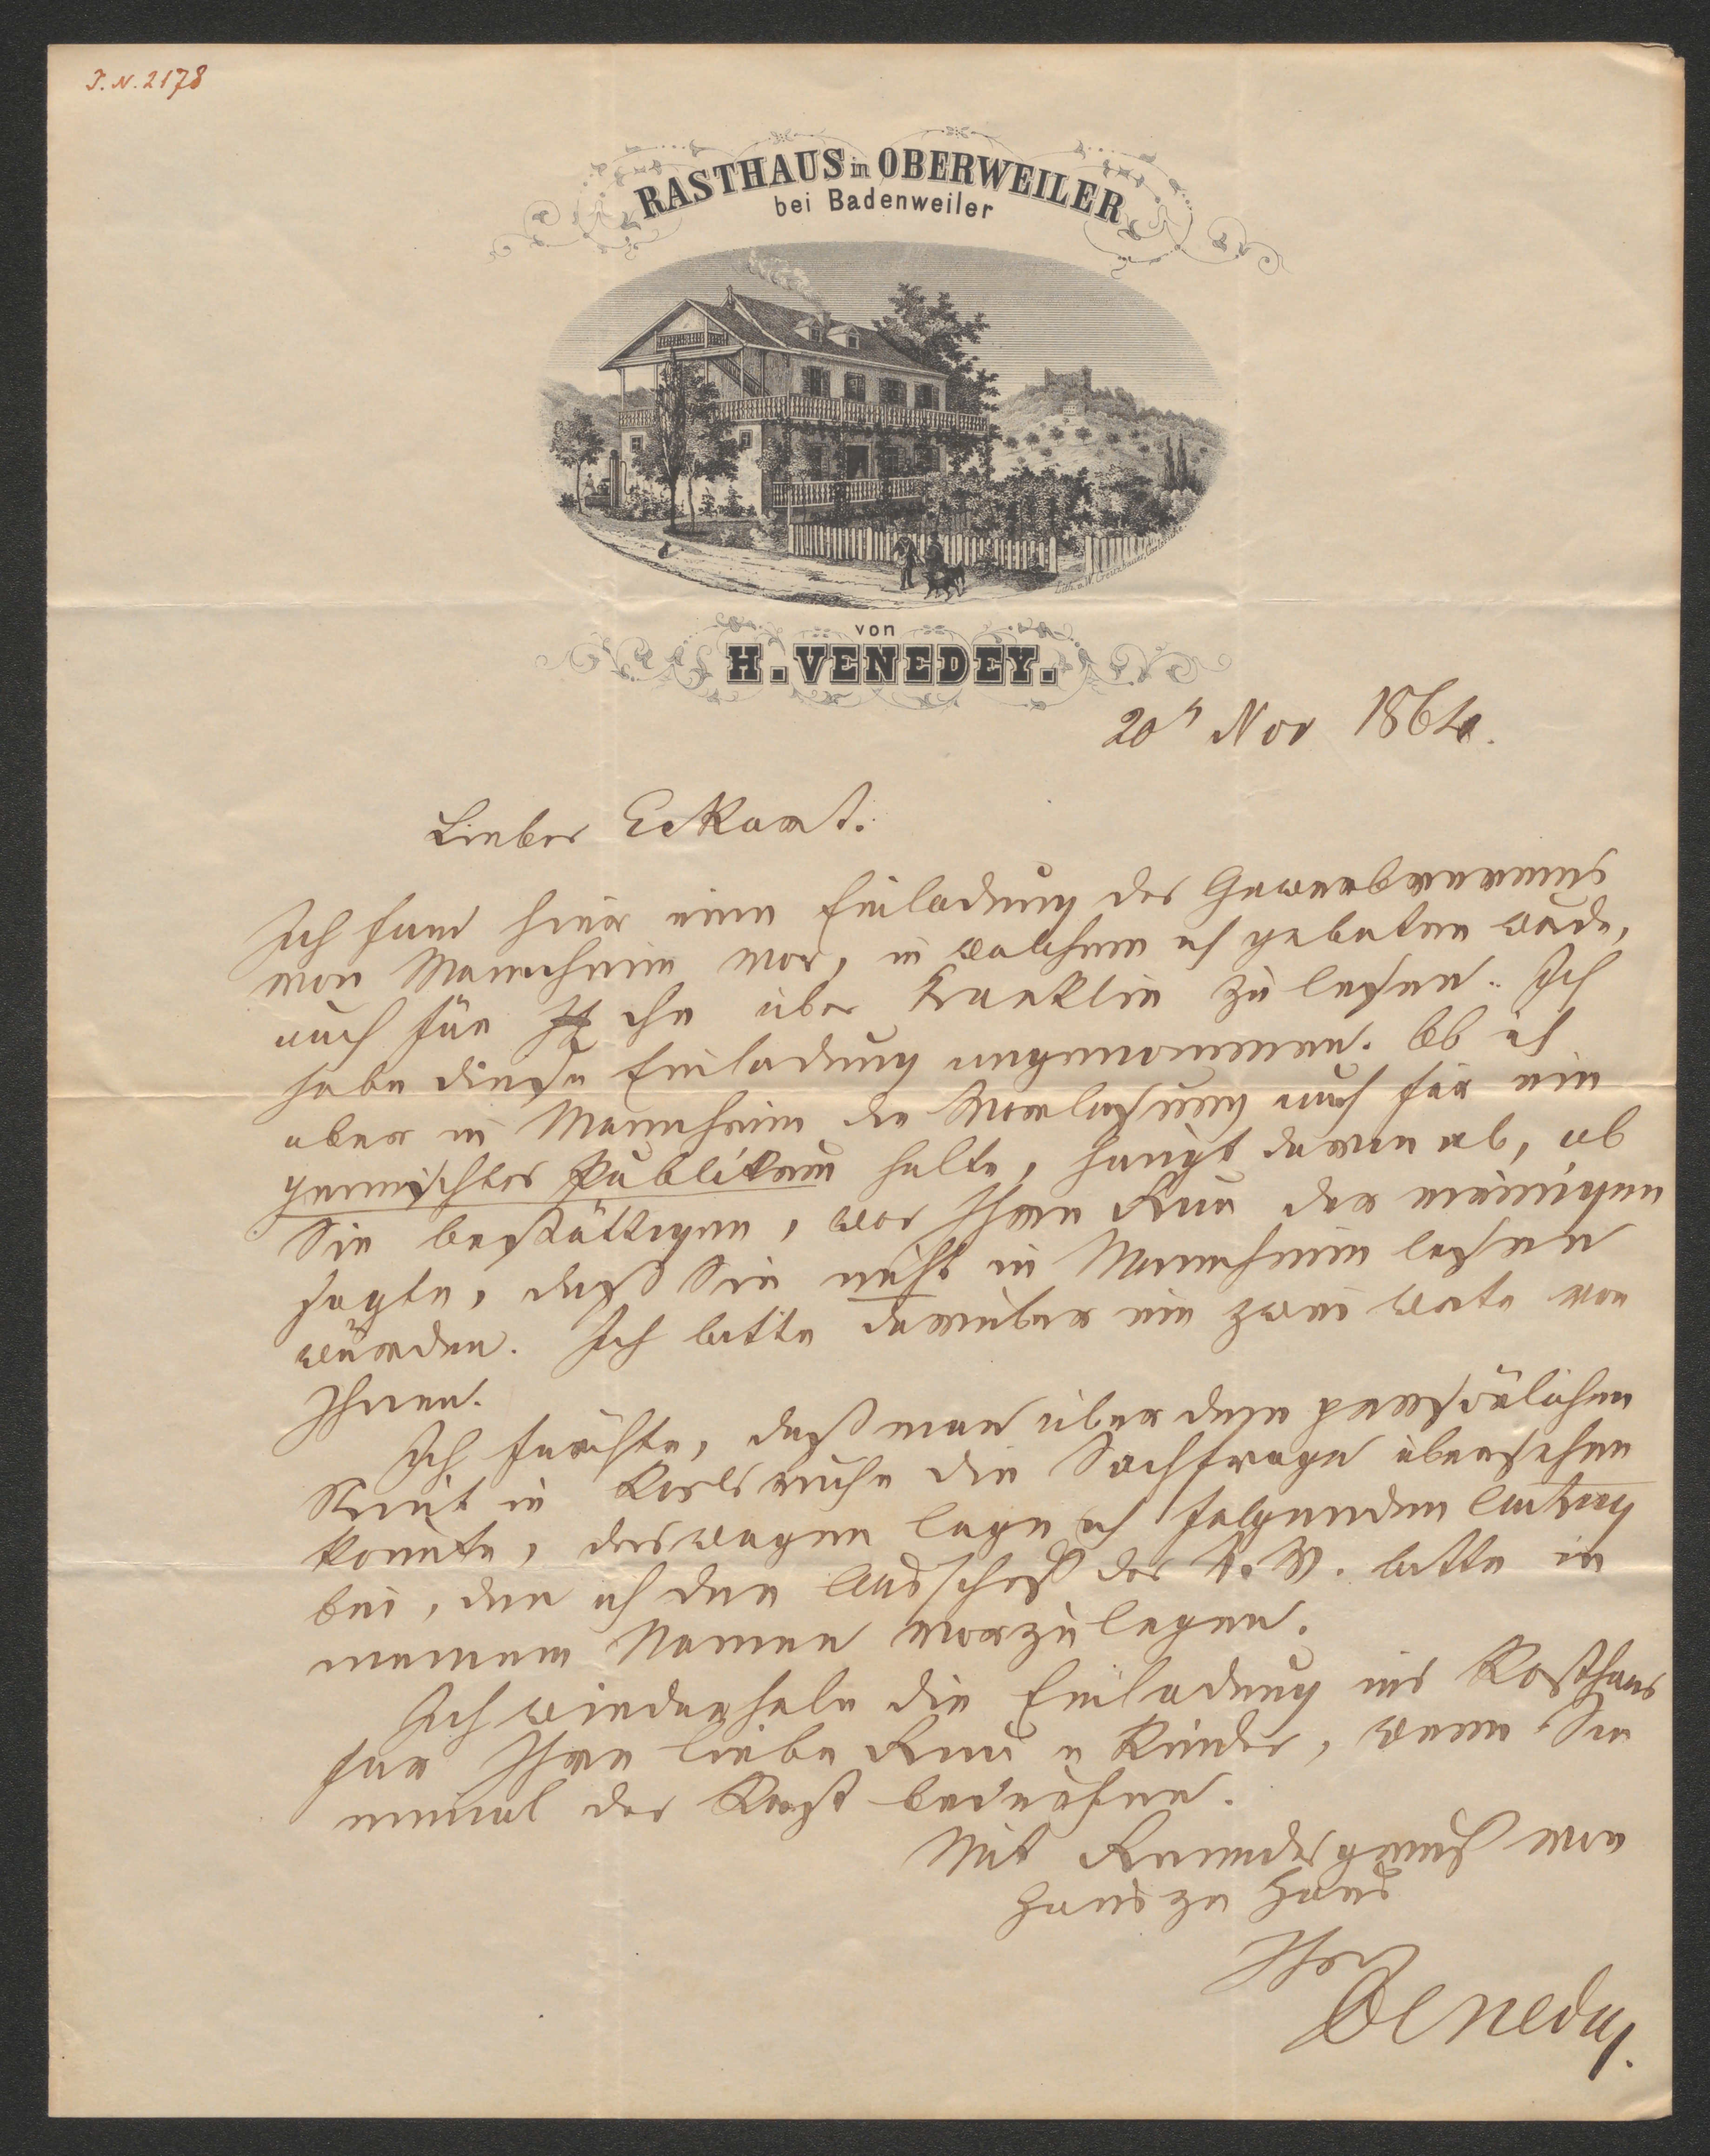 I. N. 2178
RASTHAUS in OBERWEILER
bei Badenweiler
Lith. v. W. Creuzbauer, Carlsruhe.
von
H. VENEDEY.
20t Nov 1864.
Lieber Eckart.
Ich fand hier eine Einladung des Gewerbvereins
von Mannheim vor, in welchem ich gebeten wurde,
auch für über Franklin zu lesen. Ich
habe diese Einladung angenommen. Ob ich
aber in Mannheim die Vorlesung auch für ein
gemischtes Publikum halte, hängt davon ab, ob
Sie bestättigen, was Ihre Frau der meinigen
sagte, daß Sie nicht in Mannheim lesen
würden. Ich bitte darüber ein zwei Worte von
Ihnen.
Ich fürchte, daß man über dem persönlichen
Streit in Karlsruhe die Sachfrage übersehen
könnte, deswegen lege ich folgenden Antrag
bei, den ich den Ausschuß des bitte in
meinem Namen vorzulegen.
Ich wiederhole die Einladung ins Rasthaus
für Ihre liebe Frau u Kinder, wenn Sie
einmal der Rast bedürfen.
Mit Freundesgruß von
Haus zu Haus
Ihr
Venedey.